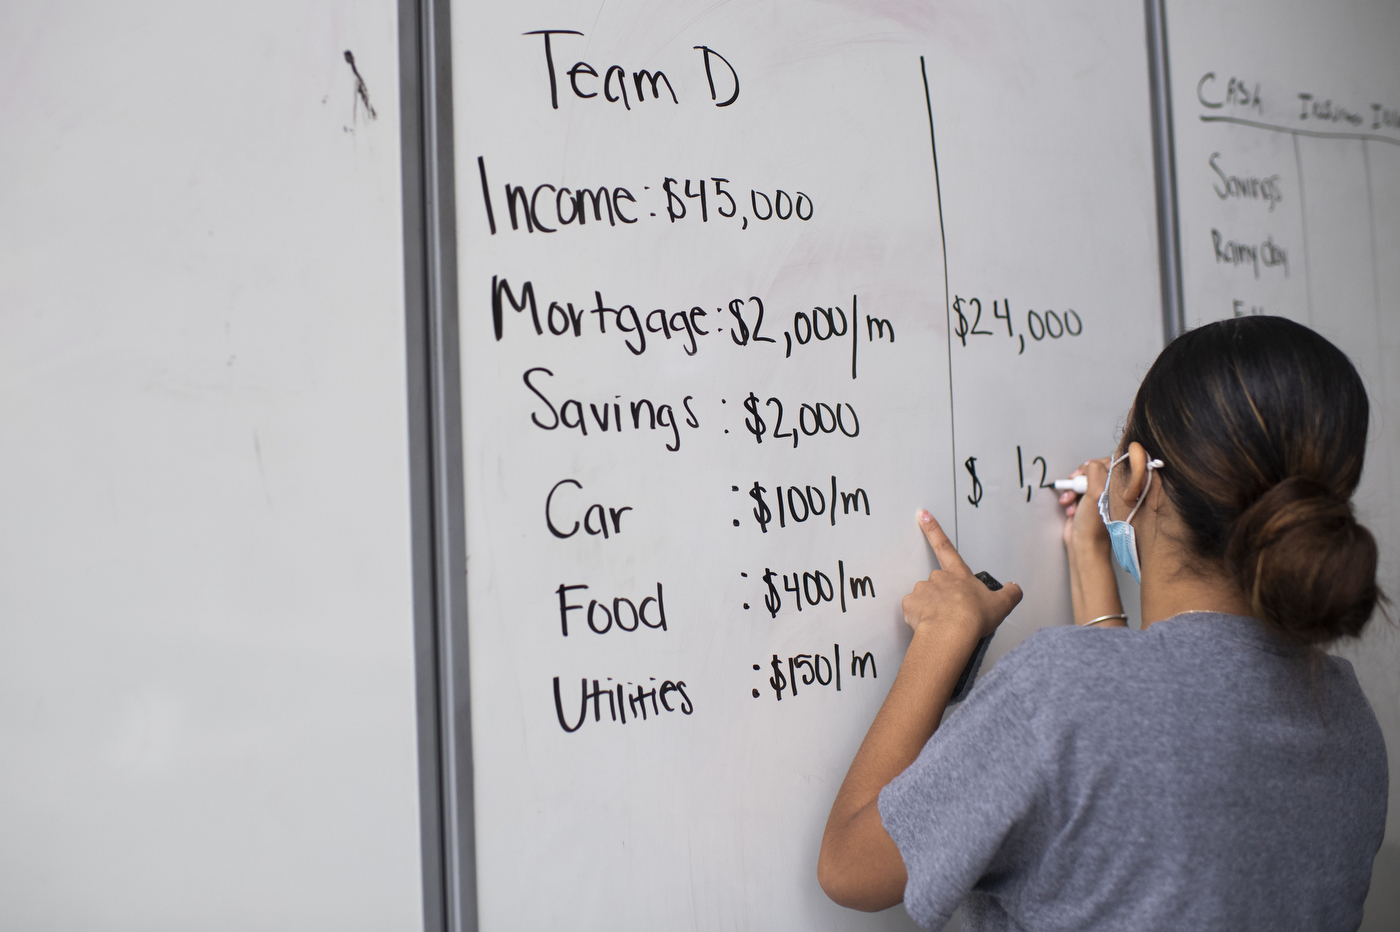 Team D
Income: $45,000
Mortgage: $2,000/m $24,000
Savings : $2,000
Car : $100/m $ 1,2
Food : $400/m
Utilities : $150/m
CASH
Savings
Rainy day